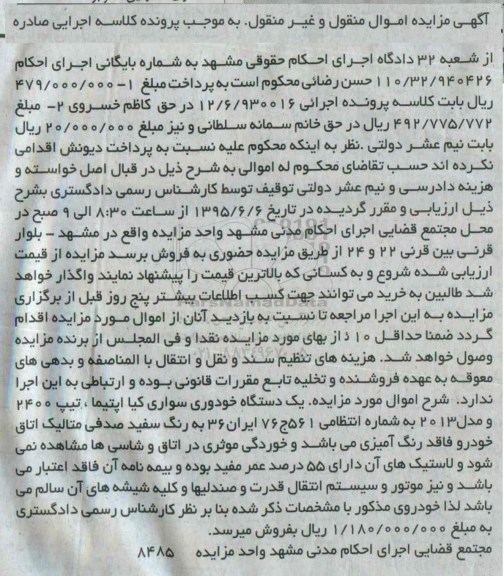 آگهی مزایده اموال منقول و غیر منقول. به موجب پرونده کلاسه اجرایی صادره
از شعبه ۳۲ دادگاه اجرای احکام حقوقی مشهد به شماره بایگانی اجرای احکام
۱۱۰/۳۲/۹۴۰۴۲۶ حسن رضائی محکوم است به پرداخت مبلغ ۱- ۴۷۹/۰۰۰/۰۰۰
ریال بابت کلاسه پرونده اجرائی ۱۲/۶/۹۳۰۰۱۶ در حق کاظم خسروی ۲- مبلغ
۴۹۲/۷۷۵/۷۷۲ ریال در حق خانم سمانه سلطانی و نیز مبلغ ۲۰/۰۰۰/۰۰۰ ریال
بابت نیم عشر دولتی .نظر به اینکه محکوم علیه نسبت به پرداخت دیونش اقدامی
نکرده اند حسب تقاضای محکوم له اموالی به شرح ذیل در قبال اصل خواسته و
هزینه دادرسی و نیم عشر دولتی توقیف توسط کارشناس رسمی دادگستری بشرح
ذیل ارزیابی و مقرر گردیده در تاریخ ۱۳۹۵/۶/۶ از ساعت ۸:۳۰ الی ۹ صبح در
محل مجتمع قضایی اجرای احکام مدنی مشهد واحد مزایده واقع در مشهد - بلوار
قرنی بین قرنی ۲۲ و ۲۴ از طریق مزایده حضوری به فروش برسد مزایده از قیمت
ارزیابی شده شروع و به کسانی که بالاترین قیمت را پیشنهاد نمایند واگذار خواهد
شد طالبین به خرید می توانند جهت کسب اطلاعات بیشتر پنج روز قبل از برگزاری
مزایده به این اجرا مراجعه تا نسبت به بازدید آنان از اموال مورد مزایده اقدام
گردد ضمنا حداقل ۱۰ ٪ از بهای مورد مزایده نقدا و فی المجلس از برنده مزایده
وصول خواهد شد. هزینه های تنظیم سند و نقل و انتقال با المناصفه و بدهی های
معوقه به عهده فروشنده و تخلیه تابع مقررات قانونی بوده و ارتباطی به این اجرا
ندارد. شرح اموال مورد مزایده. یک دستگاه خودوری سواری کیا اپتیما ، تیپ ۲۴۰۰
و مدل۲۰۱۳ به شماره انتظامی ۵۶۱ج۷۶ ایران۳۶ به رنگ سفید صدفی متالیک اتاق
خودرو فاقد رنگ آمیزی می باشد و خوردگی موثری در اتاق و شاسی ها مشاهده نمی
شود و لاستیک های آن دارای ۵۵ درصد عمر مفید بوده و بیمه نامه آن فاقد اعتبار می
باشد و نیز موتور و سیستم انتقال قدرت و صندلیها و کلیه شیشه های آن سالم می
باشد لذا خودروی مذکور با مشخصات ذکر شده بنا بر نظر کارشناس رسمی دادگستری
به مبلغ ۱/۱۸۰/۰۰۰/۰۰۰ ریال بفروش میرسد.
مجتمع قضایی اجرای احکام مدنی مشهد واحد مزایده ۸۴۸۵